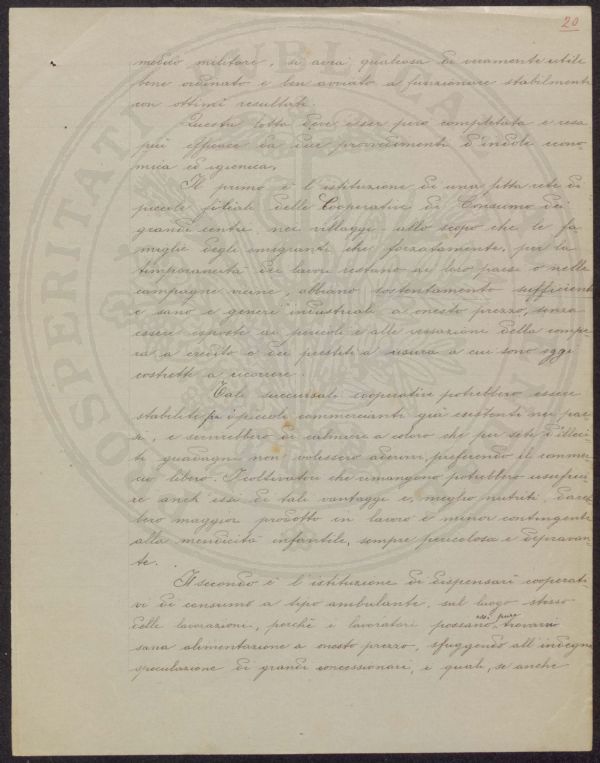 20
medico militare, si avrà qualcosa di veramente utile
bene ordinato e ben avviato a funzionare stabilmente
con ottimi resultati.
Questa lotta deve esser però completata e resa
più efficace da due provvedimenti d'indole econo-
mica ed igienica.
Il primo è l'istituzione di una fitta rete di
piccole filiali delle Cooperative di Consumo dei
grandi centri, nei villaggi - allo scopo che le fa
miglie degli emigranti che forzatamente, per la
temporaneità dei lavori restano al loro paese o nelle
campagne vicine, abbiano sostentamento sufficiente
e sano e generi industriali a onesto prezzo, senza
essere esposte ai pericoli e alle vessazioni della compe
ra a credito o dei prestiti a usura a cui sono oggi
costrette a ricorrere.
Tali succursali cooperative potrebbero essere
stabilite fra i piccoli commercianti già esistenti nei pae
si, e servirebbero di calmiere a coloro che per sete d'illeci-
ti guadagni non volessero aderirvi, preferendo il commer
cio libero. I coltivatori che rimangono potrebbero usufrui
re anch'essi di tali vantaggi e, meglio nutriti, dareb
bero maggior prodotto in lavoro e minor contingente
alla mendicità infantile, sempre pericolosa e depravan-
te.
Il secondo è l'istituzione di dispensari cooperati-
vi di consumo a tipo ambulante, sul luogo stesso
delle lavorazioni, perchè i lavoratori possano essi pure trovarvi
sana alimentazione a onesto prezzo, sfuggendo all'indegna
speculazione di grandi concessionari, i quali, se anche
PROSPERITATI PUBLICAE